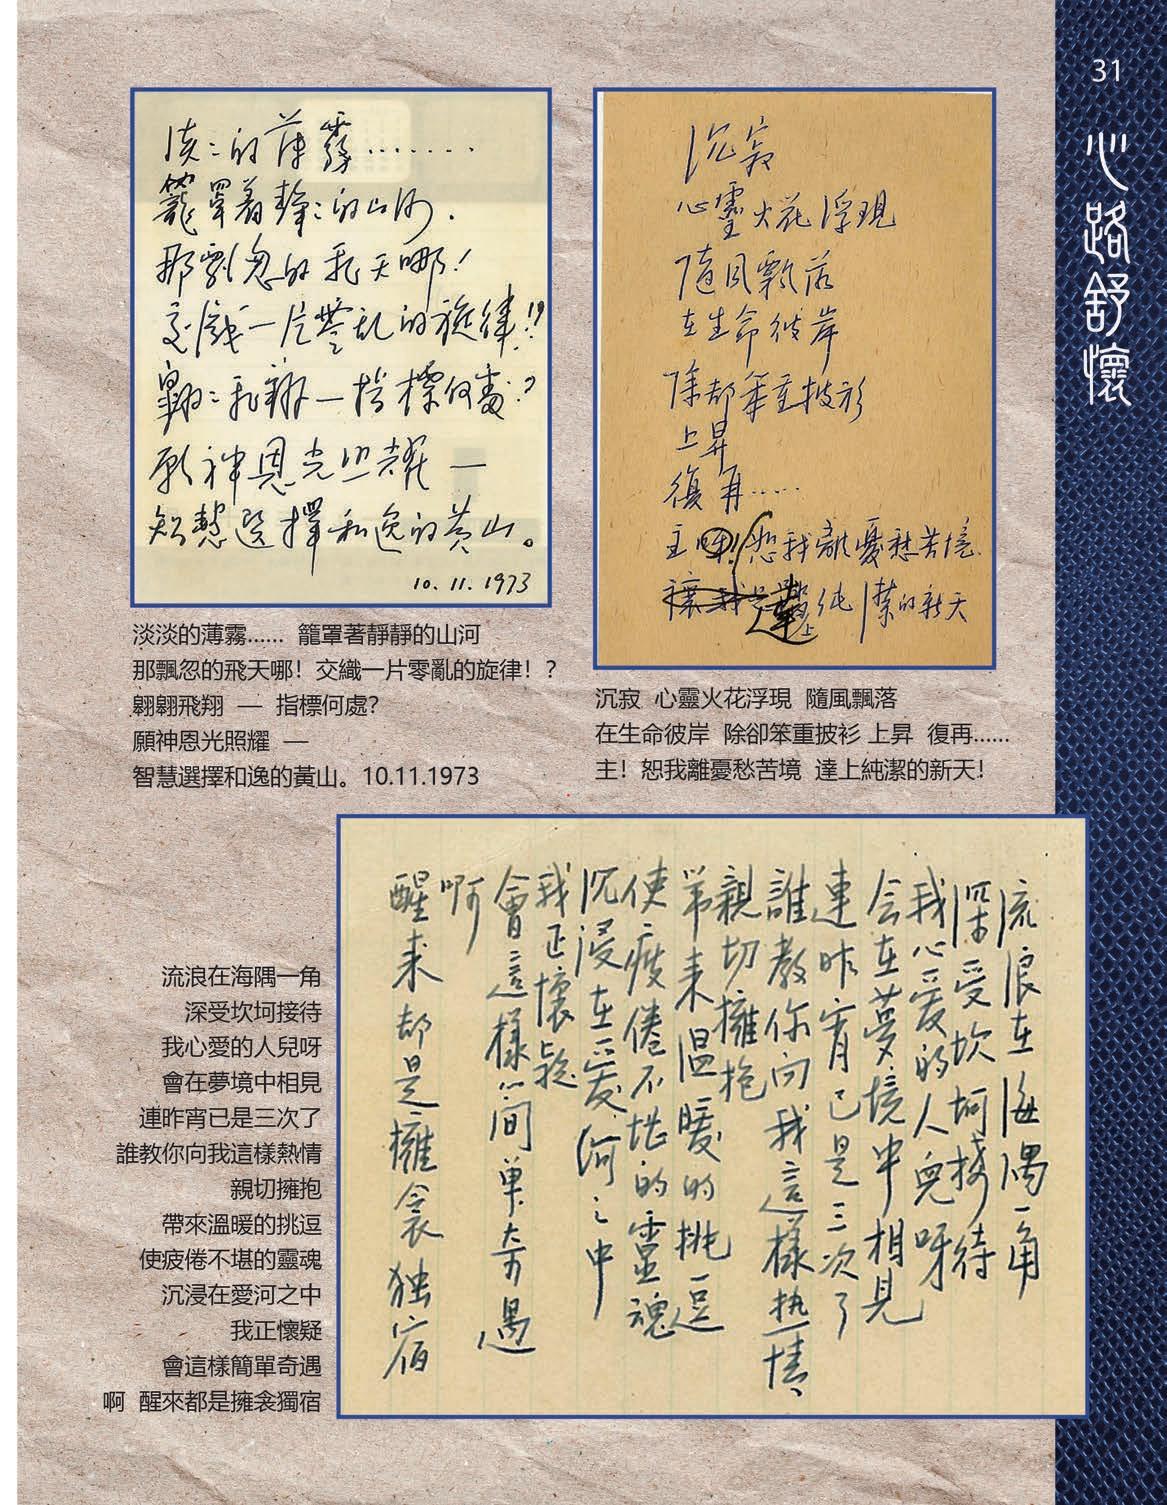 31
心路舒懷
淡〻的薄霧.......
籠罩着靜〻的山河.
那飄忽的飛天哪!
交織一片零乱的旋律!?
翱〻飛翔—指標何處?
願神恩光照耀—
智慧選擇和逸的黃山。
10.11.1973
淡淡的薄霧...... 籠罩著靜靜的山河
那飄忽的飛天哪！交織一片零亂的旋律！？
翱翱飛翔 — 指標何處？
願神恩光照耀 —
智慧選擇和逸的黃山。10.11.1973
沉寂
心靈火花浮現
隨風飄落
在生命彼岸
除却笨重披衫
上昇
復再.....
主!恕我離憂愁苦境.
達上純潔的新天
沉寂 心靈火花浮現 隨風飄落
在生命彼岸 除卻笨重披衫 上昇 復再......
主！恕我離憂愁苦境 達上純潔的新天！
流浪在海隅一角
深受坎坷接待
我心爱的人兒呀
会在夢境中相見
連昨宵已是三次了
誰教你向我這樣热情、
親切擁抱
帶来温暖的挑逗
使疲倦不堪的靈魂
沉浸在愛河之中
我正懷疑
會這樣簡单奇遇
啊
醒来却是擁衾独宿
流浪在海隅一角
深受坎坷接待
我心愛的人兒呀
會在夢境中相見
連昨宵已是三次了
誰教你向我這樣熱情
親切擁抱
帶來溫暖的挑逗
使疲倦不堪的靈魂
沉浸在愛河之中
我正懷疑
會這樣簡單奇遇
啊 醒來都是擁衾獨宿